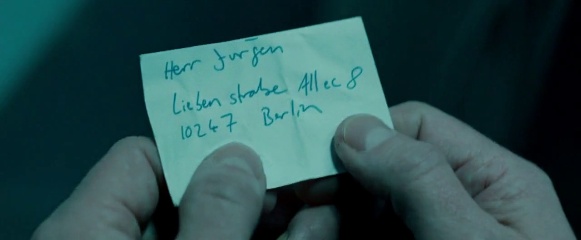 Herr Jürgen
Lieben straße Allee 8
10247 Berlin